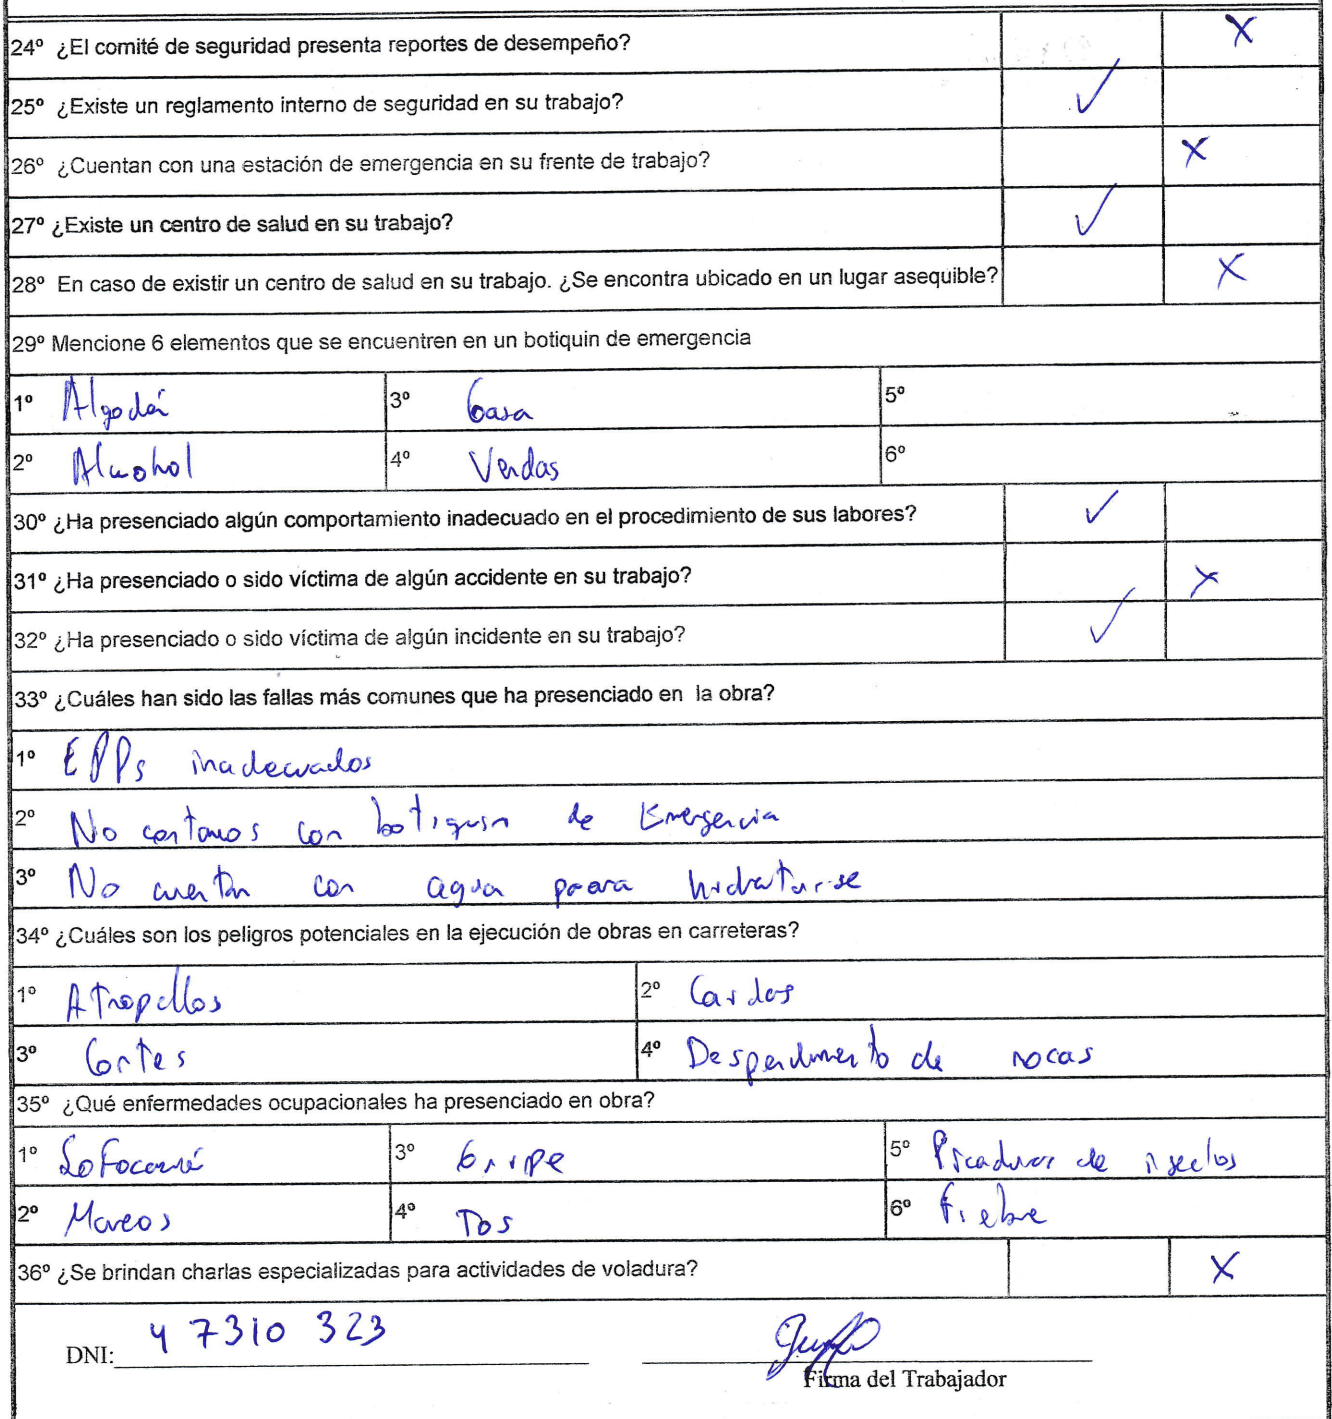 24º ¿El comité de seguridad presenta reportes de desempeño? X
25º ¿Existe un reglamento interno de seguridad en su trabajo? ✓
26º ¿Cuentan con una estación de emergencia en su frente de trabajo? X
27º ¿Existe un centro de salud en su trabajo? ✓
28º En caso de existir un centro de salud en su trabajo. ¿Se encontra ubicado en un lugar asequible? X
29º Mencione 6 elementos que se encuentren en un botiquin de emergencia
1º Algodón 3º Gasa 5º
2º Alcohol 4º Vendas 6º
30º ¿Ha presenciado algún comportamiento inadecuado en el procedimiento de sus labores? ✓
31º ¿Ha presenciado o sido víctima de algún accidente en su trabajo? X
32º ¿Ha presenciado o sido víctima de algún incidente en su trabajo? ✓
33º ¿Cuáles han sido las fallas más comunes que ha presenciado en la obra?
1º EPPs inadecuados
2º No contamos con botiquin de Emergencia
3º No cuentan con agua para hidratarse
34º ¿Cuáles son los peligros potenciales en la ejecución de obras en carreteras?
1º Atropellos 2º Caidas
3º Cortes 4º Despendimento de rocas
35º ¿Qué enfermedades ocupacionales ha presenciado en obra?
1º 3º Gripe 5º Picaduras de insectos
2º Mareos 4º Tos 6º Fiebre
36º ¿Se brindan charlas especializadas para actividades de voladura? X
47310323
DNI:
Firma del Trabajador